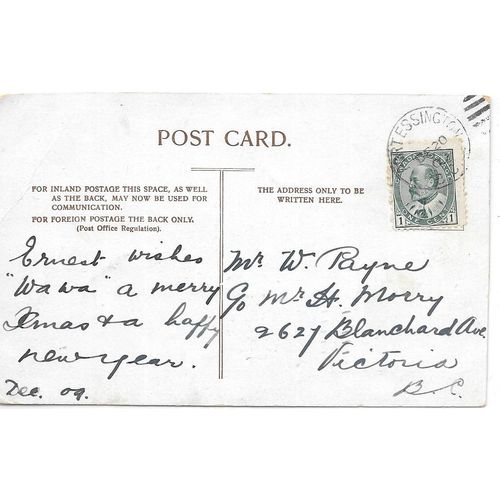 POST CARD.
FOR INLAND POSTAGE THIS SPACE, AS WELL
AS THE BACK, MAY NOW BE USED FOR
COMMUNICATION.
FOR FOREIGN POSTAGE THE BACK ONLY.
(Post Office Regulation).
THE ADDRESS ONLY TO BE
WRITTEN HERE.
Ernest wishes
"Wawa" a merry
Xmas & a happy
new year.
Dec. 09.
Mr W. Payne
C/o Mr H. Morry
2627 Blanchard Ave.
Victoria
B.C.
ESSINGTON
20
1 1